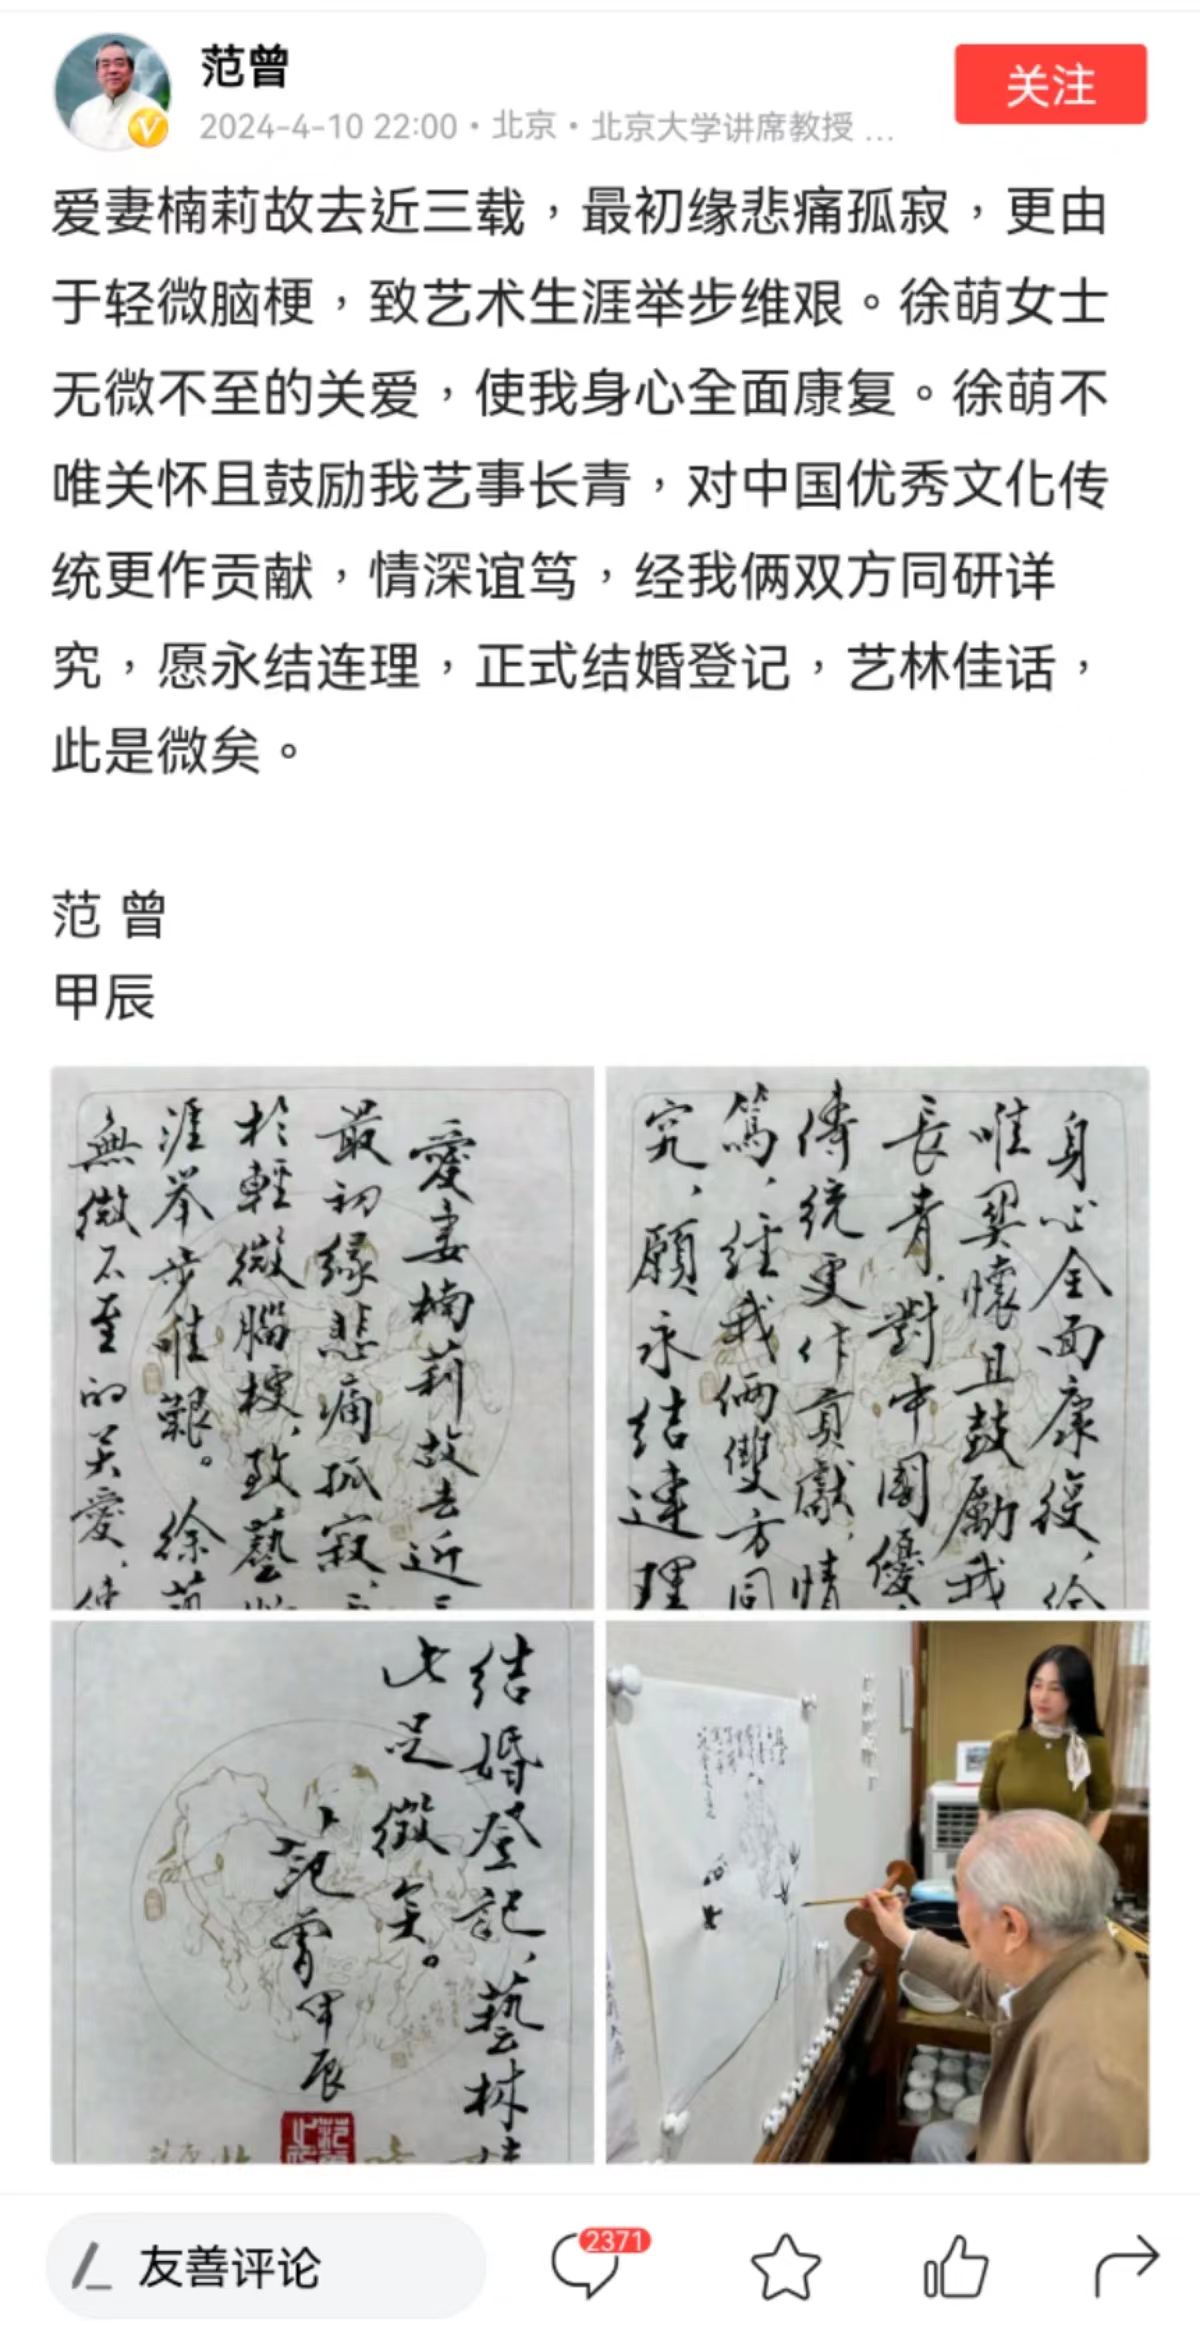 范曾
关注
2024-4-10 22:00·北京·北京大学讲席教授 ...
爱妻楠莉故去近三载，最初缘悲痛孤寂，更由
于轻微脑梗，致艺术生涯举步维艰。徐萌女士
无微不至的关爱，使我身心全面康复。徐萌不
唯关怀且鼓励我艺事长青，对中国优秀文化传
统更作贡献，情深谊笃，经我俩双方同研详
究，愿永结连理，正式结婚登记，艺林佳话，
此是微矣。
范 曾
甲辰
愛妻楠莉故去近三
最初緣悲痛孤寂、
於輕微腦梗、致藝
涯举步唯艱。徐萌
無微不至的关愛、使
身心全面康復、徐
唯関懷且鼓勵我
長青、對中國優
傳統更作貢獻、情
篤、經我倆雙方同
究、願永结連理
结婚登記、藝林佳
此足徵矣。
范曾甲辰
友善评论
2371